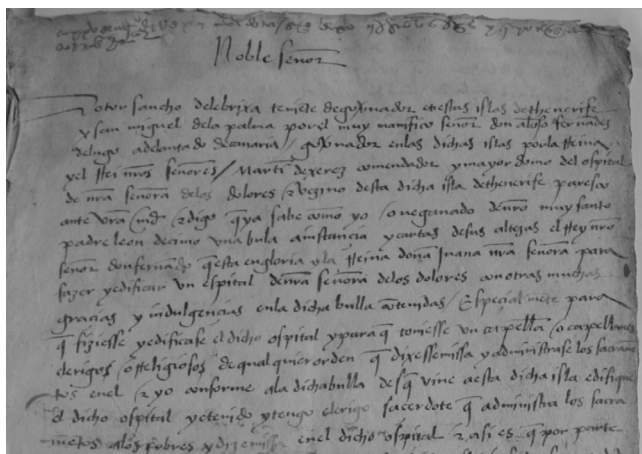 Noble señor
dotor sancho delebrixa teniẽte degoṽnador enestas islas dethenerife
y san miguel dela palma por el muy manifico señor don alõso fernãdes
delugo adelantado decanaria / goṽnador enlas dichas islas por la Reina
y el Rei nr̃os señores / Martĩ dexerez comendador y mayordomo del ospital
de nr̃a señora delos dolores & vezino desta dicha isla dethenerife paresco
ante vr̃a md̃ & digo q̃ ya sabe como yo ove ganado denr̃o muy santo
padre leon decimo una bula a instancia y cartas de sus altezas el Rey nr̃o
señor don fernãdo q̃ esta en gloria & la Reina doña Juana nr̃a señora para
fazer y edificar un espital denr̃a señora delos dolores con otras muchas
gracias y indulgencias enla dicha bulla cõtenidas / Especial mẽte para
q̃ fiziesse y edificase el dicho ospital y para q̃ toviesse un capellã o capellanes
clerigos / o Religiosos de qual quier orden q̃ dixesse missa y administrase los sacramẽ
tos enel & yo conforme ala dicha bulla desq̃ vine a esta dicha isla edifique
el dicho ospital y etenido y tengo clerigo sacerdote q̃ administra los sacra
mẽtos alos pobres y dize missa enel dicho ospital & asi es q̃ por parte